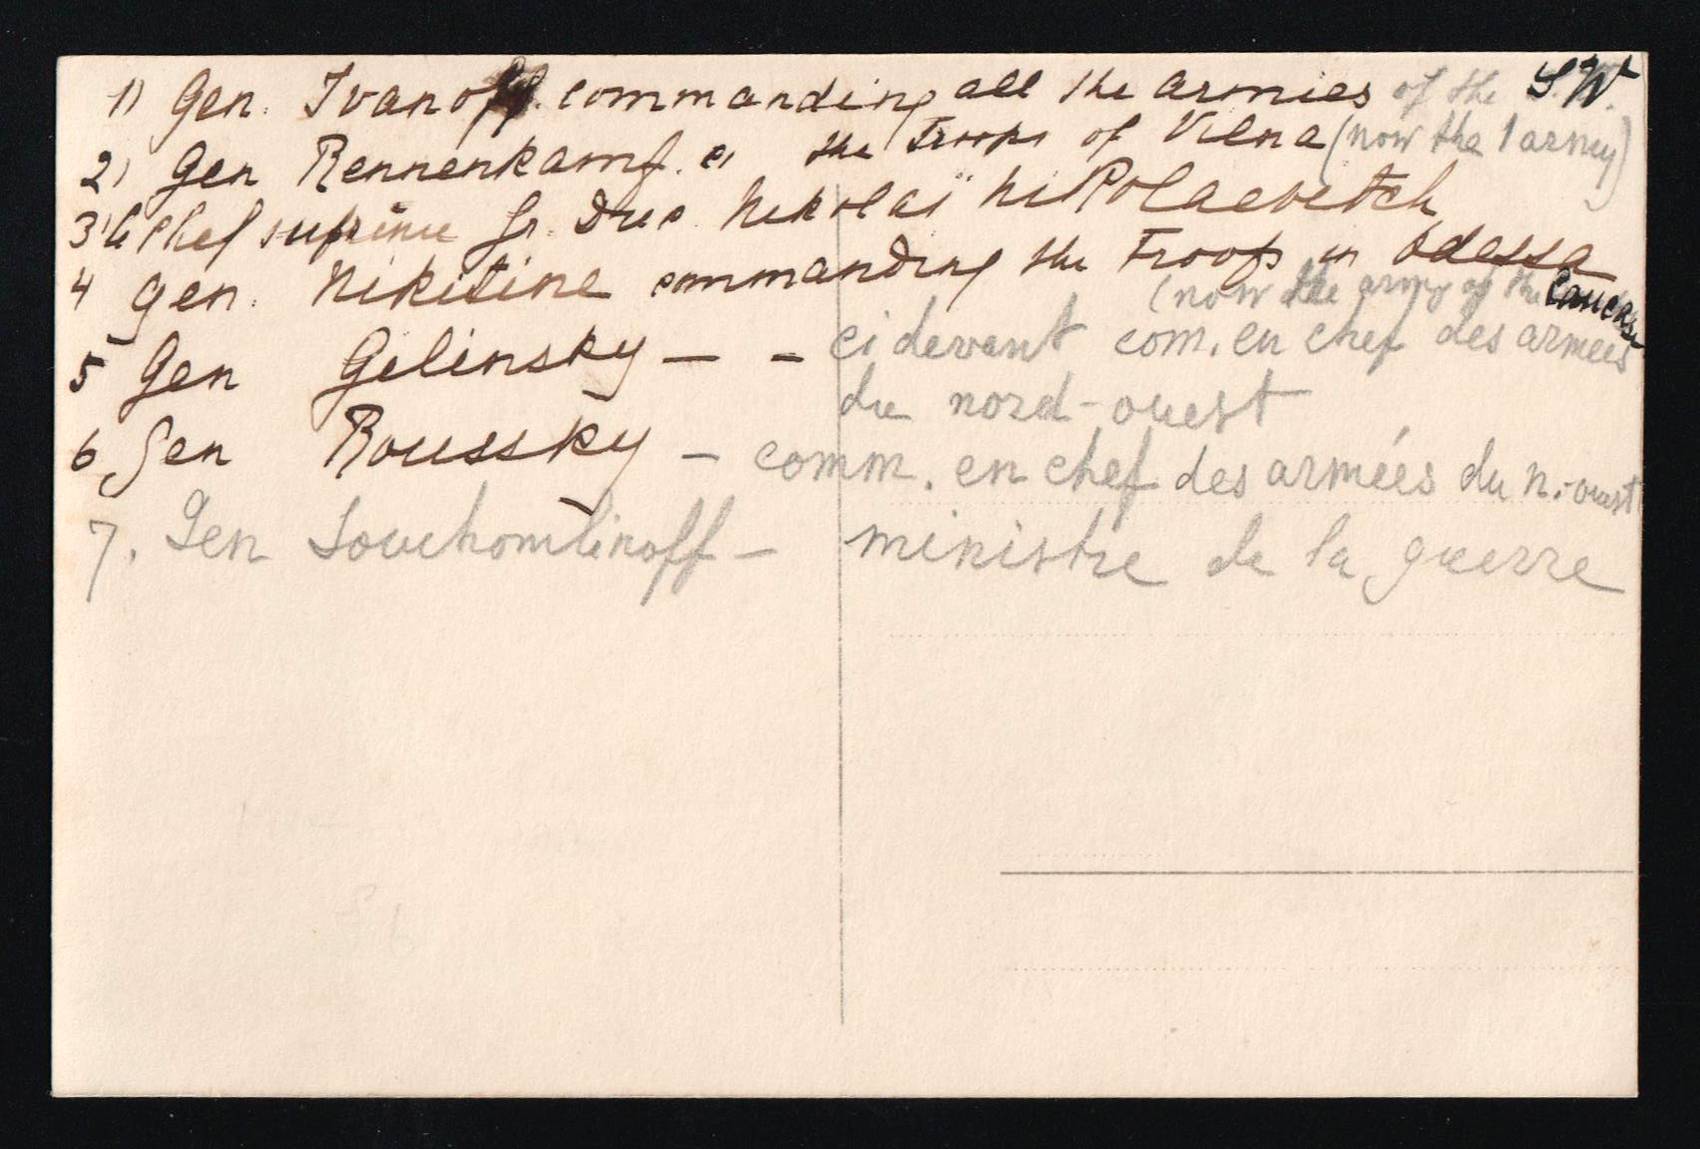 1) Gen. Ivanoff. commanding all the armies of the S.W.
2) Gen Rennenkamf. " the Troops of Vilna (now the 1 army)
3) le Chef suprème Gr. Duc. Nikolaï Nikolaevitch
4 Gen. Nikitine commanding the Troops in Odessa
(now the army of the Caucase
5 Gen Gelinsky — - ci devant com. en chef des armées
du nord-ouest
6 Gen Roussky - comm. en chef des armées du n.-ouest
7. Gen Souchomlinoff - ministre de la guerre